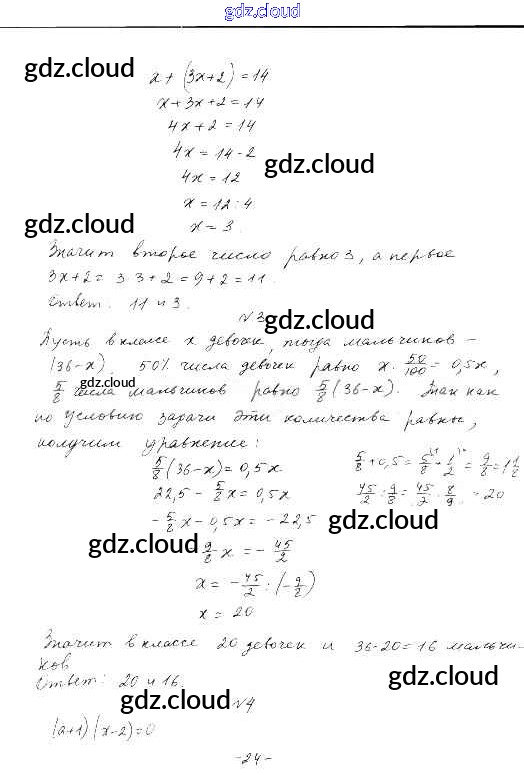 gdz.cloud
gdz.cloud
x + (3x+2) = 14
x + 3x + 2 = 14
4x + 2 = 14
4x = 14 - 2
gdz.cloud
4x = 12
x = 12 : 4
gdz.cloud
x = 3.
Значит второе число равно 3, а первое
3x + 2 = 3·3 + 2 = 9 + 2 = 11.
Ответ. 11 и 3.
N 3
gdz.cloud
Пусть в классе x девочек, тогда мальчиков -
(36-x). 50% числа девочек равно x · 50/100 = 0,5x,
gdz.cloud
5/8 числа мальчиков равно 5/8 (36-x). Так как
по условию задачи эти количества равны,
получим уравнение:
5/8 (36-x) = 0,5x
5/8 + 0,5 = 5/8 + 1/2 = 9/8 = 1 1/8
22,5 - 5/8 x = 0,5x
45/2 : 9/8 = 45/2 · 8/9 = 20
- 5/8 x - 0,5x = - 22,5
gdz.cloud
gdz.cloud
9/8 x = - 45/2
x = - 45/2 : (- 9/8)
x = 20
Значит в классе 20 девочек и 36-20=16 мальчи-
ков
gdz.cloud
Ответ: 20 и 16.
gdz.cloud
N 4
(x+1)(x-2)=0
- 24 -